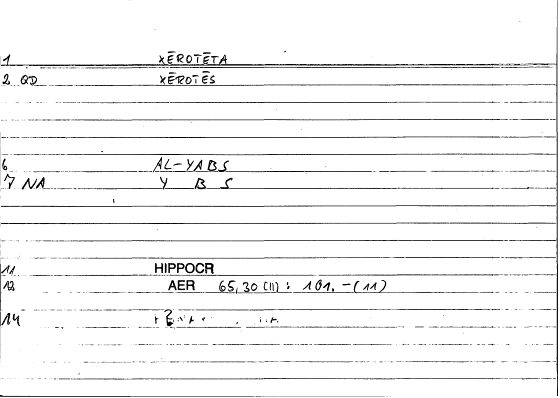 1 XĒROTĒTA
2 QD XĒROTĒS
6 AL-YABS
7 NA Y B S
11 HIPPOCR
12 AER 65,30 (11) : 101. -(11)
14